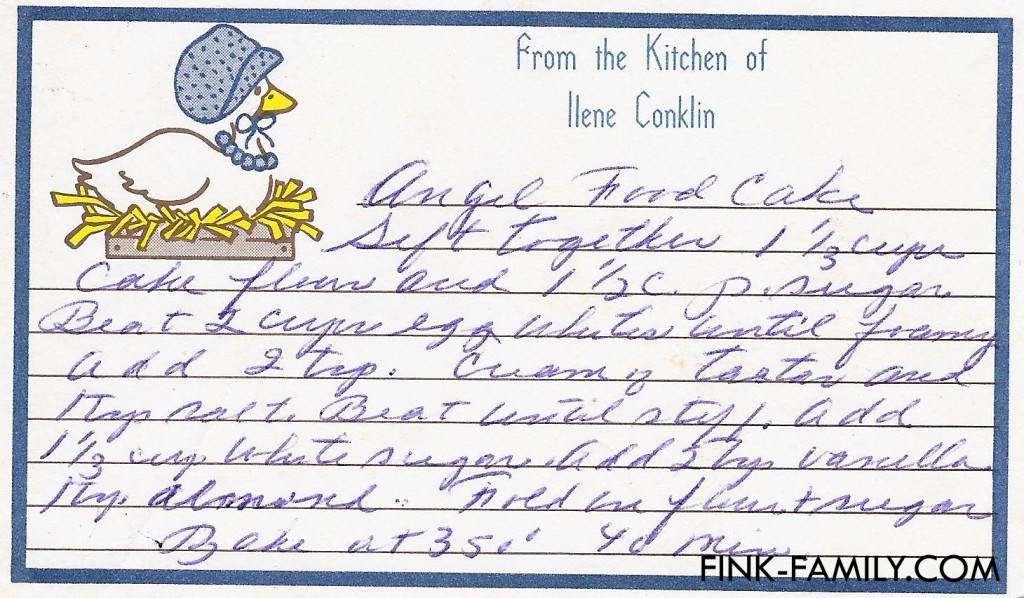 From the Kitchen of
Ilene Conklin
Angel Food Cake
Sift together 1 1/3 cups
Cake flour and 1 1/2 c. p. sugar.
Beat 2 cups egg whites until foamy
add 2 tsp. Cream of tartar and
1 tsp salt. Beat until stiff. add
1 1/3 cup white sugar. add 2 tsp vanilla
1 tsp. almond. Fold in flour + sugar
Bake at 350° 40 min
FINK-FAMILY.COM